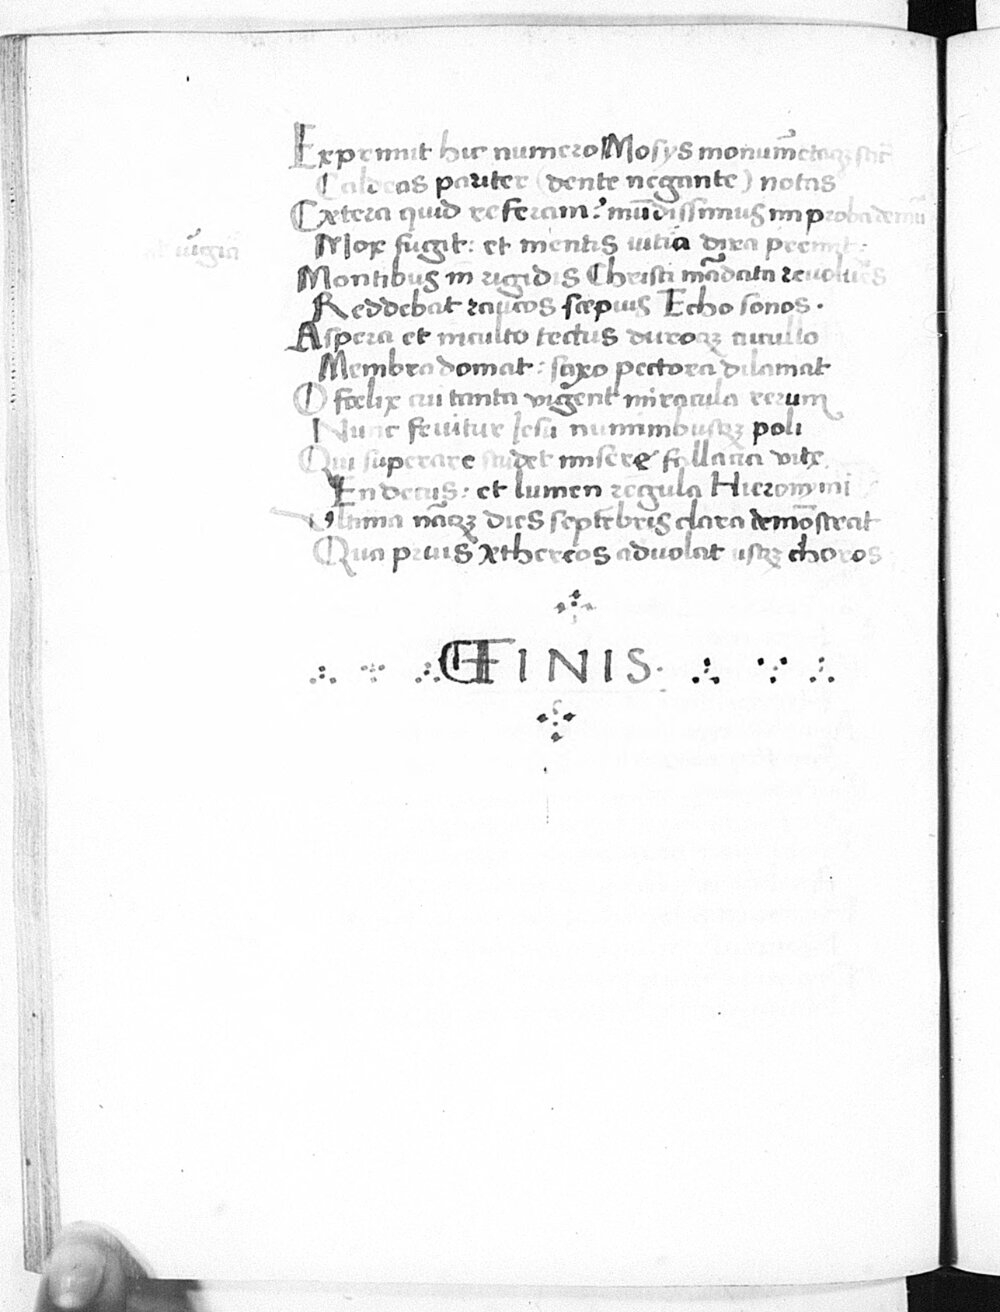 Exprimit hic numero Mosys monum̄etaqꝫ
Caldeas pariter (dente negante) notas
Cætera quid referam? mūdissimus improba
Mox fugit: et mentis uitia dira premit:
Montibus in rigidis Christi mādata reuoluēs
Reddebat raucos sæpius Echo sonos.
Aspera et inculto tectus duroqꝫ cucullo
Membra domat: saxo pectora dilamat
O fœlix cui tanta vigent miracula rerum
Nunc feuitur Iesu numinibusqꝫ poli
Qui superare studet miseræ fallacia vitæ
En decus: et lumen regula Hieronymi
Vltima nāqꝫ dies septēbris clara demōstrat
Qua priuis æthereos aduolat usqꝫ choros
FINIS.